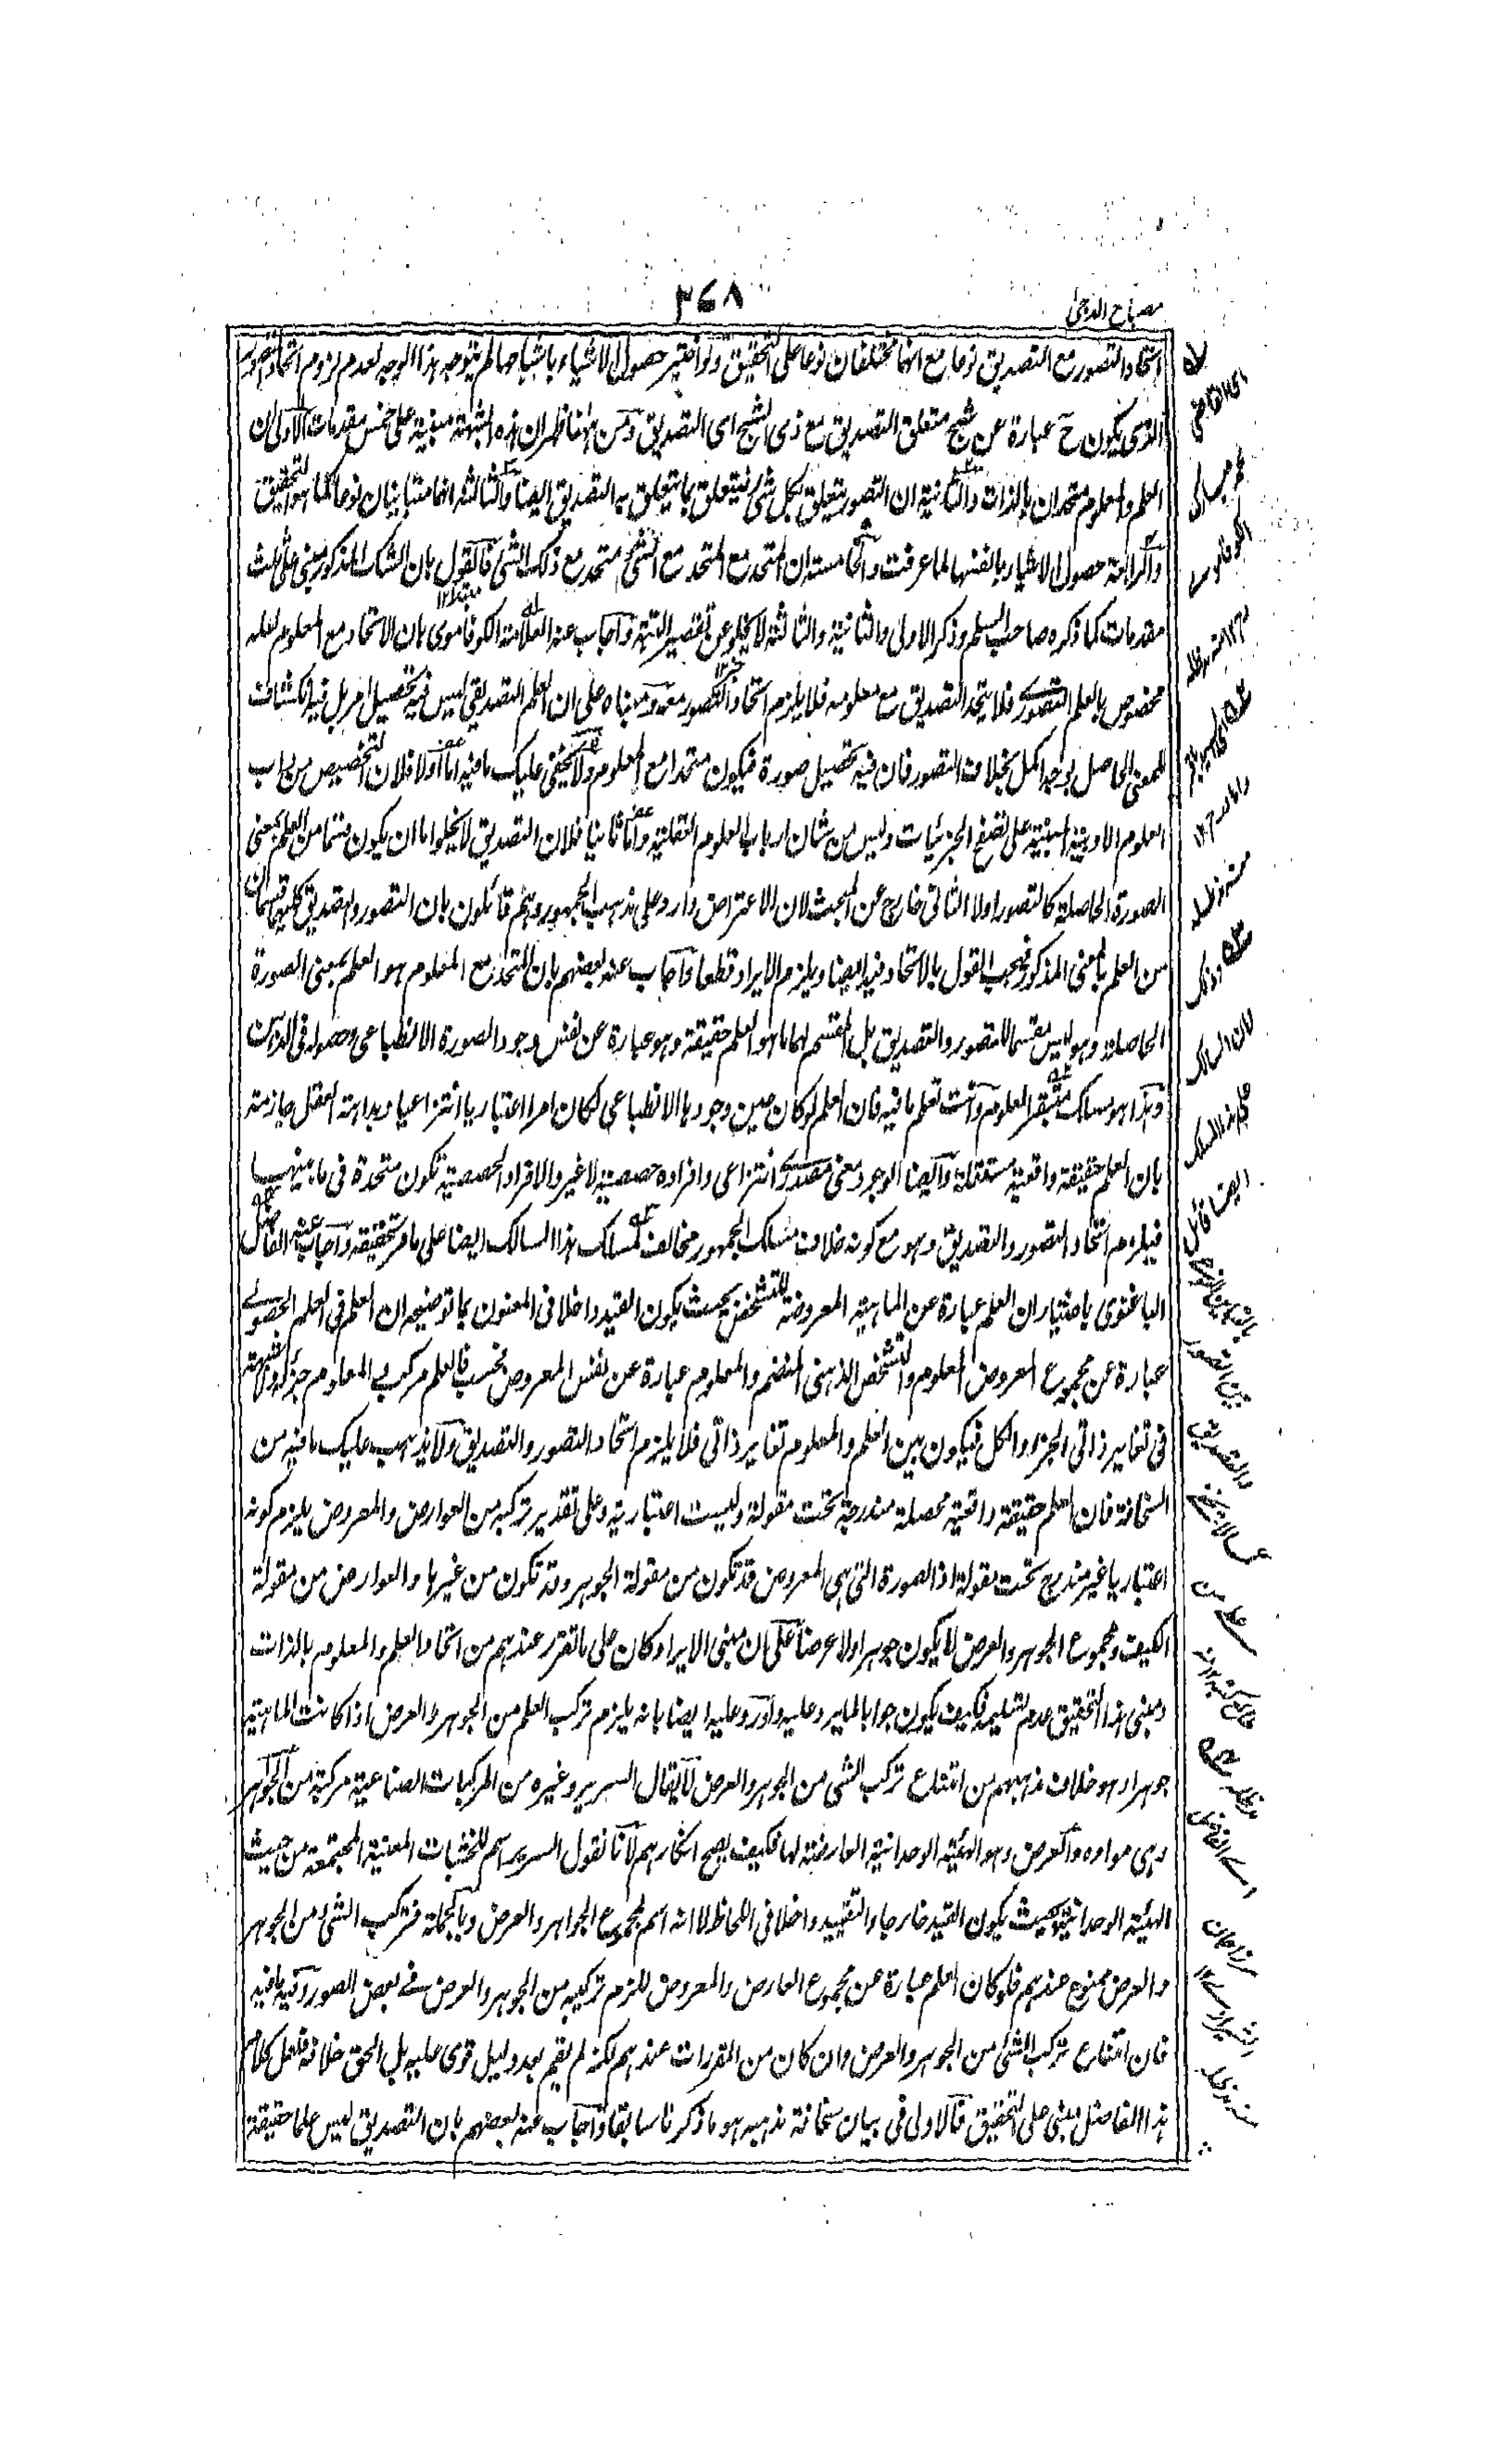 مصباح الدجى
٣٦٨
اتحاد التصور مع التصديق نوعا مع انهما مختلفان نوعا على التحقيق ولو اختير حصول الاشياء باشباحها لم يتوجه هذا الوجه لعدم لزوم اتحاد التصور
الذى يكون ح عبارة عن شبح متعلق التصديق مع ذى الشبح اى التصديق ومن ههنا ظهر ان هذه الشبهة مبنية على خمس مقدمات الاولى ان
العلم والمعلوم متحدان بالذات والثانية ان التصور يتعلق بكل شئ فيتعلق بما يتعلق به التصديق ايضا والثالثة انهما متباينان نوعا كما هو التحقيق
والرابعة حصول الاشياء بانفسها لما عرفت والخامسة ان المتحد مع المتحد مع الشئ متحد مع ذلك الشئ فالقول بان الشك المذكور مبنى على ثلث
مقدمات كما ذكره صاحب السلم وذكر الاولى والثانية والثالثة لا يخلو عن تقصير التتمة واجاب عنه العلامة الكوفاموى بان الاتحاد مع المعلوم لعله
مخصوص بالعلم التصورى فلا يتحد التصديق مع معلومه فلا يلزم اتحاد التصور معه ومبناه على ان العلم التصديقى ليس فيه تحصيل امر بل فيه انكشاف
المعنى الحاصل بوجه اكمل بخلاف التصور فان فيه تحصيل صورة فيكون متحدا مع المعلوم ولا يخفى عليك ما فيه اما اولا فلان التخصيص من داب
العلوم الادبية المبنية على تصفح الجزئيات وليس من شان ارباب العلوم العقلية واما ثانيا فلان التصديق لا يخلو اما ان يكون قسما من العلم بمعنى
الصورة الحاصلة كالتصور اولا الثانى خارج عن المبحث لان الاعتراض وارد على مذهب الجمهور وهم قائلون بان التصور والتصديق كليهما قسمان
من العلم بالمعنى المذكور فيجب القول بالاتحاد فيه ايضا ويلزم الايراد قطعا واجاب عنه بعضهم بان المتحد مع المعلوم هو العلم بمعنى الصورة
الحاصلة وهو ليس مقسما للتصور والتصديق بل المقسم لهما ما هو العلم حقيقة وهو عبارة عن نفس وجود الصورة الانطباعى وحصوله فى الذهن
وهذا هو مسلك متبقر العلوم وانت تعلم ما فيه فان العلم لو كان عين وجودها الانطباعى لكان امرا اعتباريا انتزاعيا وبداهة العقل جازمة
بان العلم حقيقة واقعية مستقلة وايضا الوجود معنى مصدرى انتزاعى وافراده حصصية لا غير والافراد الحصصية تكون متحدة فى ماهيتها
فيلزم اتحاد التصور والتصديق وهو مع كونه خلاف مسلك الجمهور مخالف لمسلك هذا السالك ايضا على ما ستحققه واجاب عنه الفاضل
الباغنوى باختيار ان العلم عبارة عن الماهية المعروضة للتشخص بحيث يكون القيد داخلا فى المعنون بما توضيحه ان العلم فى العلم الحصولى
عبارة عن مجموع المعروض المعلوم والتشخص الذهنى المنضم والمعلوم عبارة عن نفس المعروض فحسب فالعلم مركب والمعلوم جزئه ولا شبهة
فى تغاير ذاتى الجزء والكل فيكون بين العلم والمعلوم تغاير ذاتى فلا يلزم اتحاد التصور والتصديق ولا يذهب عليك ما فيه من
السخافة فان العلم حقيقة واقعية محصلة مندرجة تحت مقولة وليست اعتبارية وعلى تقدير تركبه من العوارض والمعروض يلزم كونه
اعتباريا غير مندرج تحت مقولة اذ الصورة التى هى المعروض قد تكون من مقولة الجوهر وقد تكون من غيرها والعوارض من مقولة
الكيف ومجموع الجوهر والعرض لا يكون جوهرا ولا عرضا على ان مبنى الايراد كان على ما تقرر عندهم من اتحاد العلم والمعلوم بالذات
ومبنى هذا التحقيق عدم تسليمه فكيف يكون جوابا لما يرد عليه واورد عليه ايضا بانه يلزم تركب العلم من الجوهر والعرض اذا كانت الماهية
جوهرا وهو خلاف مذهبهم من امتناع تركب الشئ من الجوهر والعرض لا يقال السرير وغيره من المركبات الصناعية مركبة من الجواهر
وهى مواده والعرض وهو الهيئة الوحدانية العارضة لها فكيف يصح انكارهم لانا نقول السرير اسم للخشبات المعينة المجتمعة من حيث
الهيئة الوحدانية بحيث يكون القيد خارجا والتقييد داخلا فى اللحاظ لا انه اسم لمجموع الجواهر والعرض وبالجملة فتركب الشئ من الجوهر
والعرض ممنوع عندهم فلو كان العلم عبارة عن مجموع العارض والمعروض للزم تركبه من الجوهر والعرض فى بعض الصور وفيه ما فيه
فان امتناع تركب الشئ من الجوهر والعرض وان كان من المقررات عندهم لكنه لم يقم بعد دليل قوى عليه بل الحق خلافه فلعل كلام
هذا الفاضل مبنى على التحقيق فالاولى فى بيان سخافة مذهبه هو ما ذكرنا سابقا واجاب عنه بعضهم بان التصديق ليس علما حقيقة
اى القاضى
محمد مبارك
الكوفاموى
منه مد ظله
اى السيد باقر
داماد
منه مد ظله
وذلك
لان السالك
على هذا المسلك
ايضا قائل
بالتباين النوعى
بين التصور
والتصديق
كما لا يخفى
على من
طالع كتبه
مد ظله
اى الفاضل
مرزا جان
الشيرازى
منه مد ظله